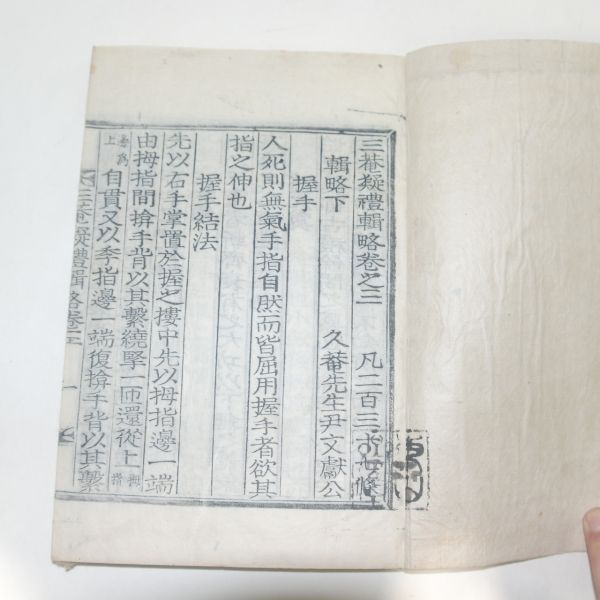 三菴疑禮輯略卷之三 凡二百三
輯略下 久菴先生尹文獻公
握手
人死則無氣手指自然而皆屈用握手者欲其
指之伸也
握手結法
先以右手掌置於握之摟中先以拇指邊一端
由拇指間掩手背以其繫繞掔一匝還從上拇指
上自貫又以季指邊一端復掩手背以其繫
三菴疑禮輯略卷三 一